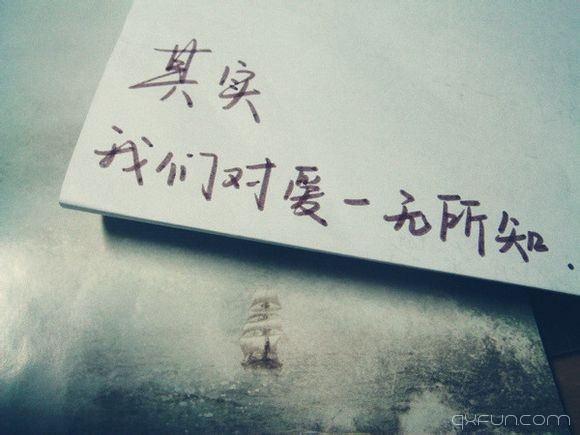 其实
我们对爱一无所知.
qxfun.com